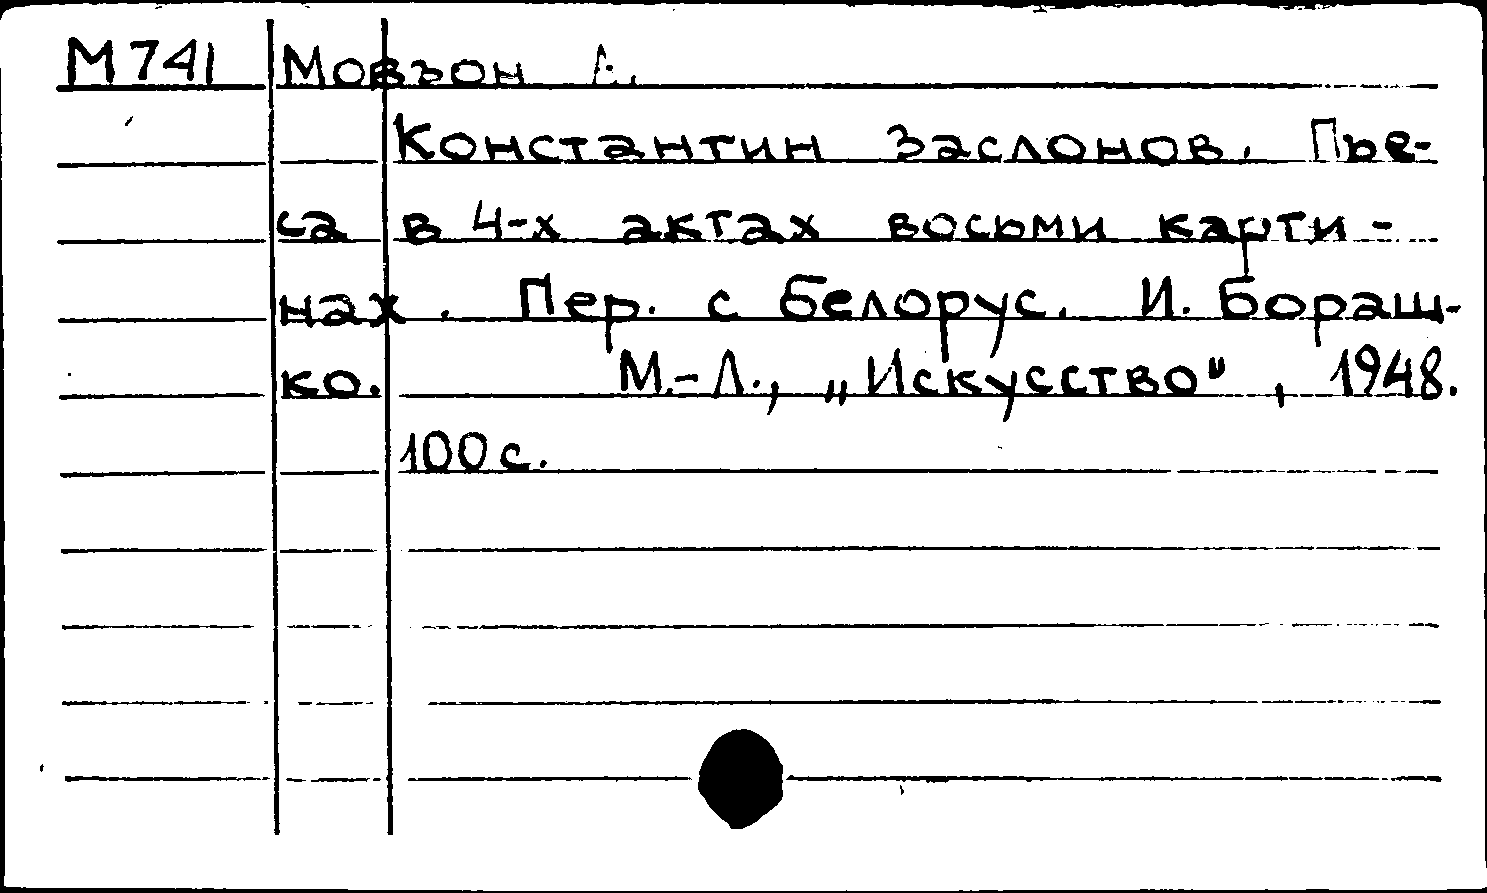 М741 Мовзон А.
Константин Заслонов. Пье-
са в 4-х актах восьми карти-
нах. Пер. с белорус. И. Бораш-
ко. М.-Л., „Искусство", 1948.
100 с.